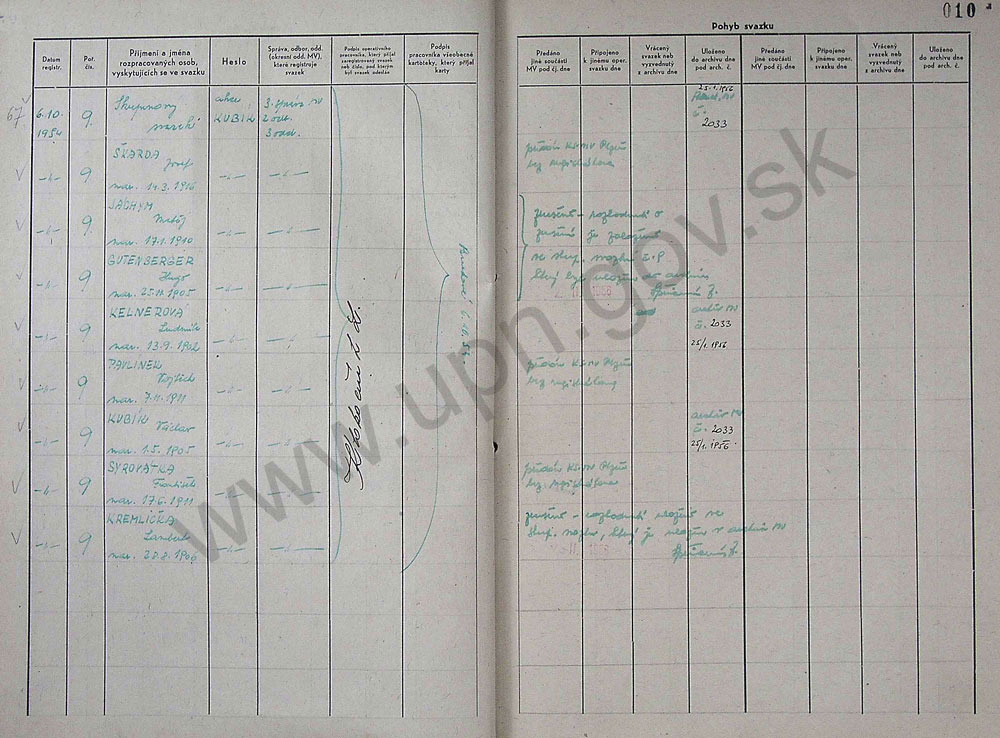 010
Pohyb svazku
Datum
registr.
Poř.
čís.
Příjmení a jména
rozpracovaných osob,
vyskytujících se ve svazku
Heslo
Správa, odbor, odd.
(okresní odd. MV),
které registruje
svazek
Podpis operativního
pracovníka, který přijal
zaregistrovaný svazek
neb číslo, pod kterým
byl svazek odeslán
Podpis
pracovníka všeobecné
kartotéky, který přijal
karty
Předáno
jiné součásti
MV pod čj. dne
Připojeno
k jinému oper.
svazku dne
Vrácený
svazek neb
vyzvednutý
z archivu dne
Uloženo
do archivu dne
pod arch. č.
Předáno
jiné součásti
MV pod čj. dne
Připojeno
k jinému oper.
svazku dne
Vrácený
svazek neb
vyzvednutý
z archivu dne
Uloženo
do archivu dne
pod arch. č.
67
6.10.
1954
9.
Skupinový
svazek
akce
KUBÍK
3. správa MV
2 odb.
3 odd.
25.1.1956
č.
2033
ŠKARDA
Josef
nar. 14.3.1916
9
předán KS-MV Plzeň
JÁCHYM
Matěj
nar. 17.1.1910
9
zrušeno - rozhodnutí o
zrušení je založeno
ve skup. svazku č. P
který byl uložen do archivu
GUTENBERGER
Hugo
9
KELNEROVÁ
Ludmila
nar. 13.9.1902
9
archiv MV
č. 2033
25/1. 1956
PAVLINEK
Vojtěch
nar. 7.11.1911
9
předán KS-MV Plzeň
KUBÍK
Václav
nar. 1.5.1905
9
archiv MV
č. 2033
25/1. 1956
SYROVÁTKA
František
nar. 17.6.1911
9
předán KS-MV Plzeň
KREMLIČKA
Lambert
9
zrušeno - rozhodnutí uloženo ve
skup. svazku, který je uložen v archivu MV
www.upn.gov.sk